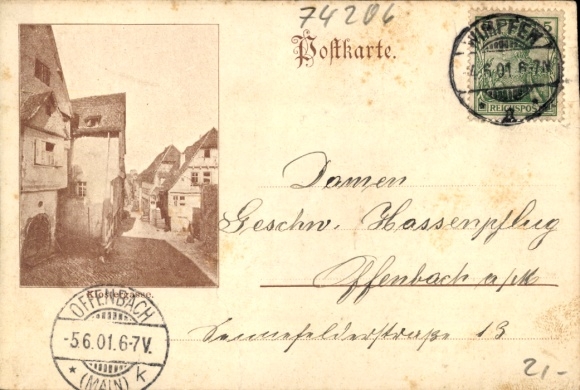 74206
Postkarte.
WIMPFEN
6.01.6-7V.
REICHSPOST
Damen
Geschw. Hassenpflug
Offenbach a/M
Sennefelderstraße 13
OFFENBACH
-5.6.01.6-7V.
* (MAIN) K
21.-